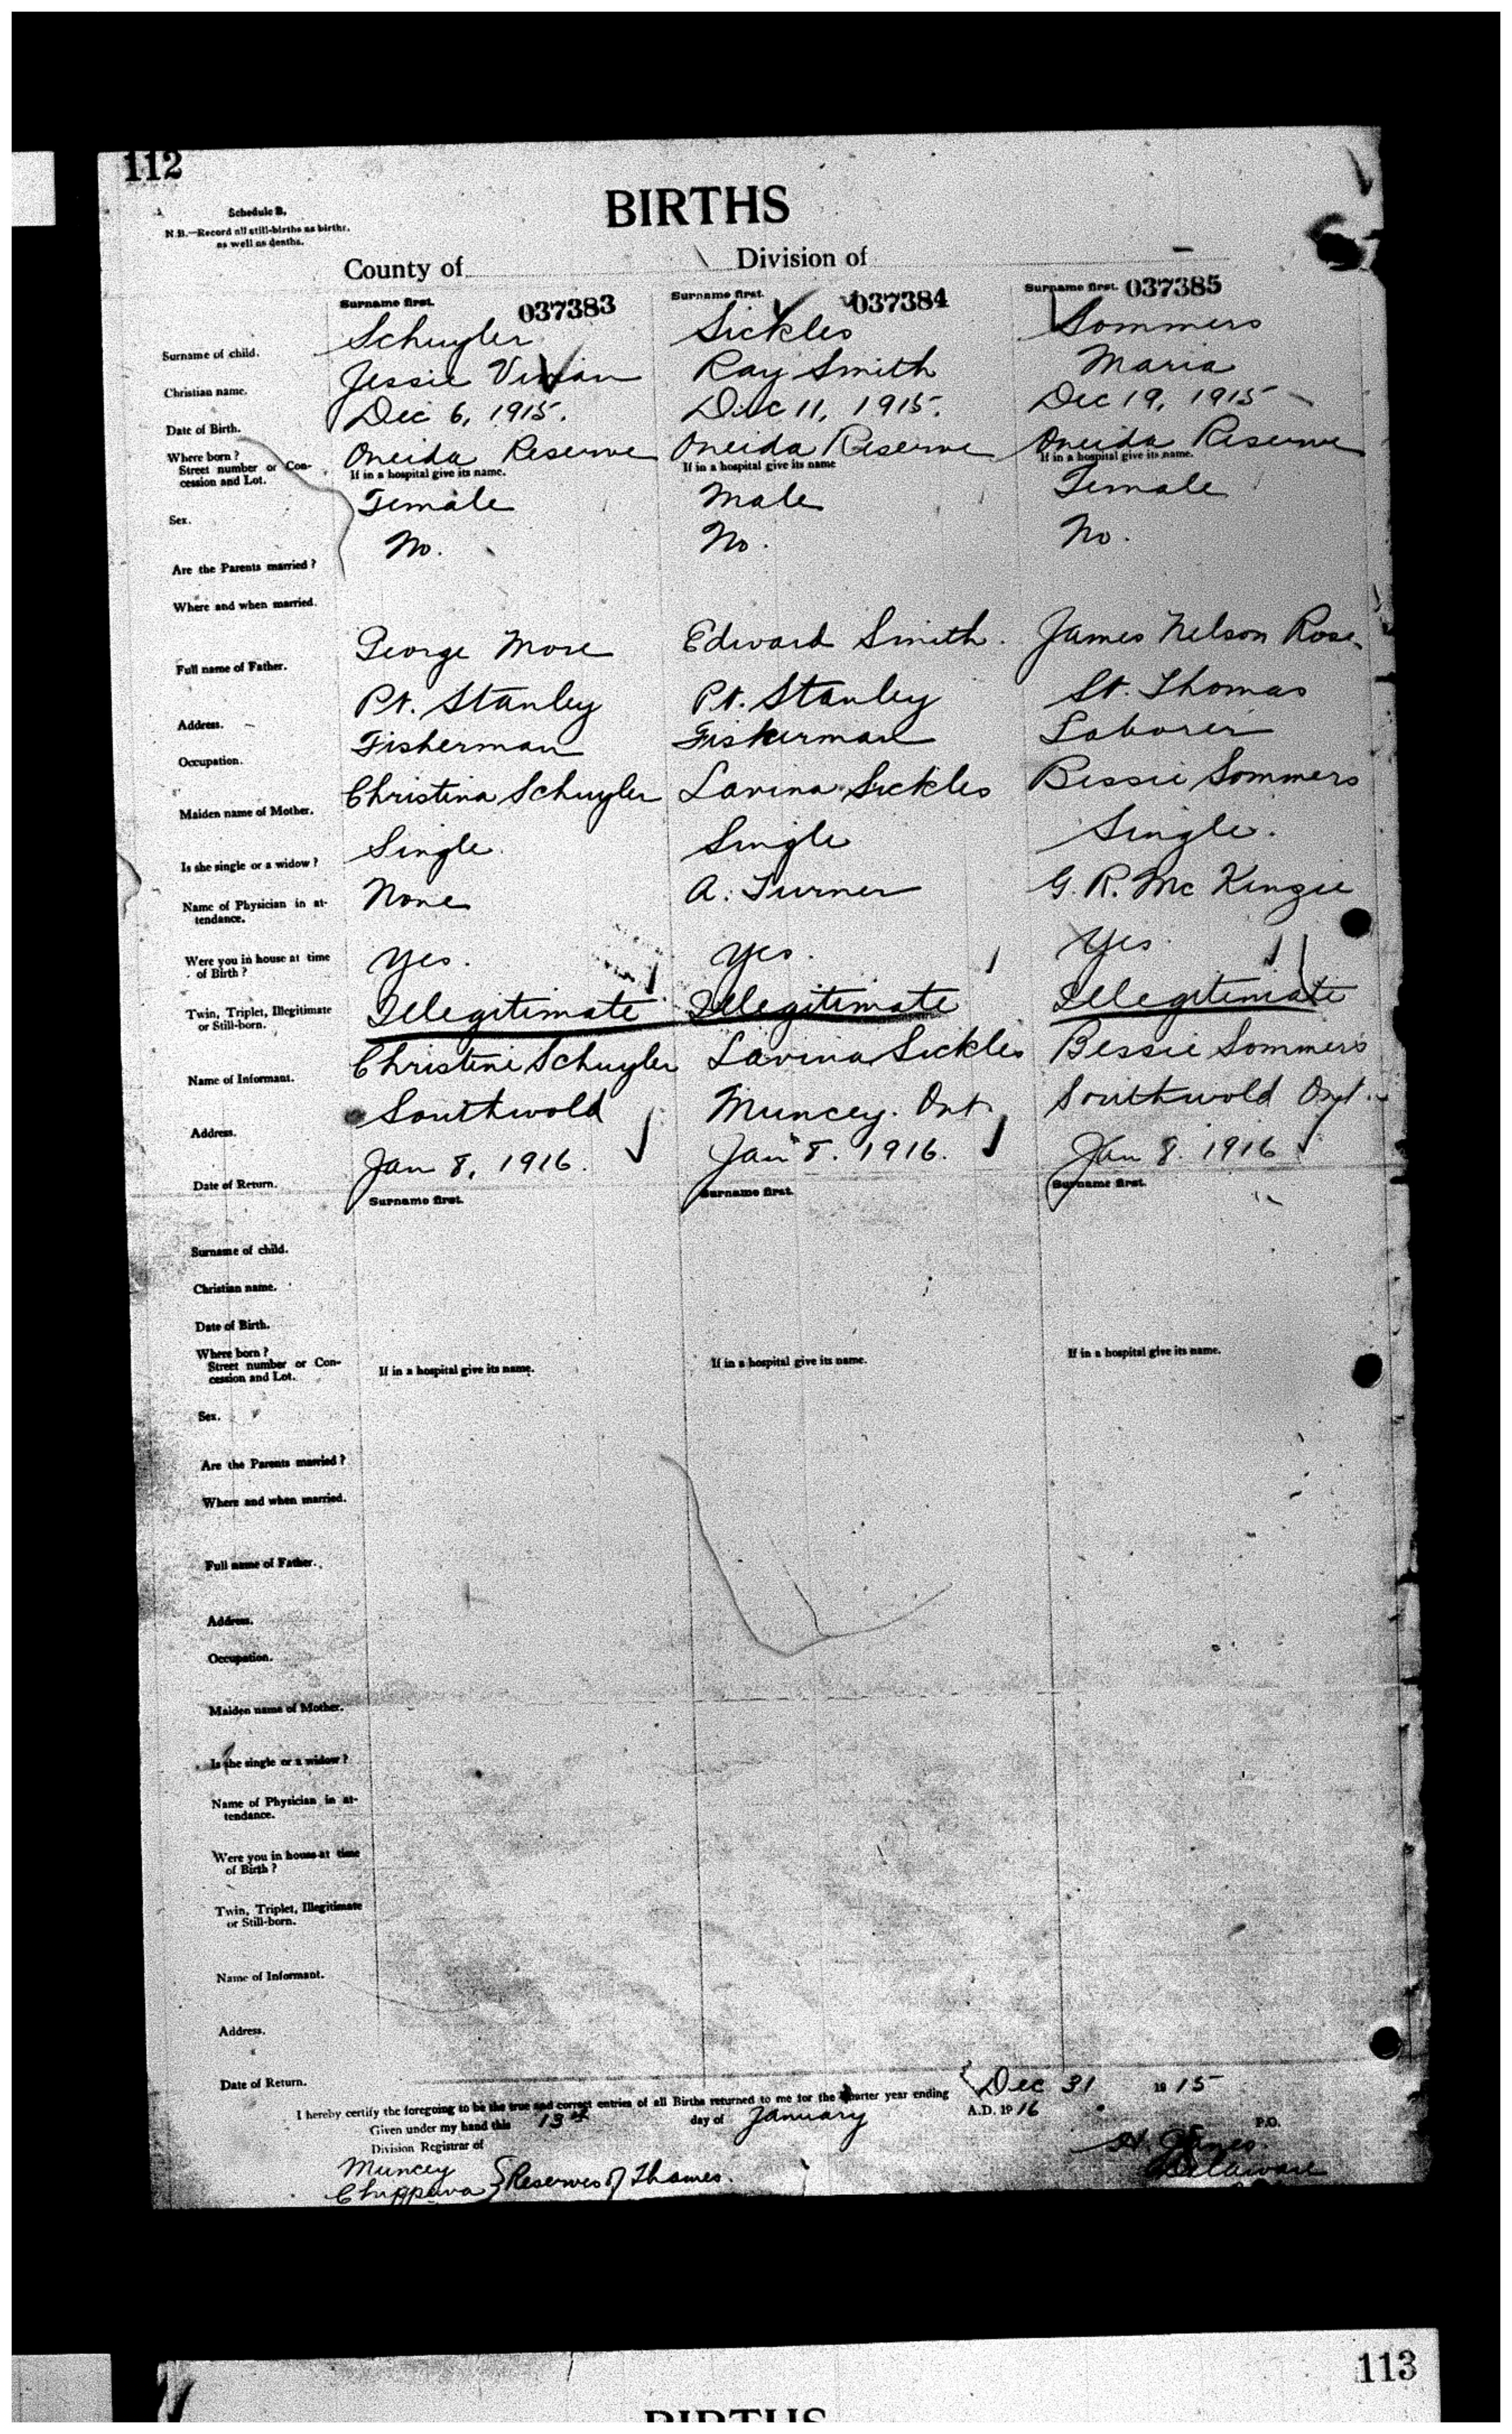 112
Schedule B.
N.B.—Record all still-births as births, as well as deaths.
BIRTHS
County of Division of
Surname first. 037383 Surname first. 037384 Surname first. 037385
Surname of child. Schuyler Sickles Sommers
Christian name. Jessie Vivian Ray Smith Maria
Date of Birth. Dec 6, 1915. Dec 11, 1915. Dec 19, 1915
Where born? Oneida Reserve Oneida Reserve Oneida Reserve
Street number or Concession and Lot. If in a hospital give its name. If in a hospital give its name If in a hospital give its name.
Sex. Female Male Female
Are the Parents married? No. No. No.
Where and when married.
Full name of Father. George More Edward Smith. James Nelson Rose
Address. Pt. Stanley Pt. Stanley St. Thomas
Occupation. Fisherman Fisherman Laborer
Maiden name of Mother. Christina Schuyler Lavina Sickles Bessie Sommers
Is she single or a widow? Single. Single Single.
Name of Physician in attendance. None A. Turner G. R. McKenzie
Were you in house at time of Birth? Yes. Yes. Yes.
Twin, Triplet, Illegitimate or Still-born. Illegitimate Illegitimate Illegitimate
Name of Informant. Christine Schuyler Lavina Sickles Bessie Sommers
Address. Southwold Muncey. Ont. Southwold Ont.
Date of Return. Jan 8, 1916. Jan 8. 1916. Jan 8. 1916
Surname first. Surname first. Surname first.
Surname of child.
Christian name.
Date of Birth.
Where born?
Street number or Concession and Lot. If in a hospital give its name. If in a hospital give its name. If in a hospital give its name.
Sex.
Are the Parents married?
Where and when married.
Full name of Father.
Address.
Occupation.
Maiden name of Mother.
Is she single or a widow?
Name of Physician in attendance.
Were you in house at time of Birth?
Twin, Triplet, Illegitimate or Still-born.
Name of Informant.
Address.
Date of Return.
I hereby certify the foregoing to be the true and correct entries of all Births returned to me for the quarter year ending Dec 31 1915
Given under my hand this 13th day of January A.D. 1916
Division Registrar of P.O.
Muncey
Chippewa } Reserves of Thames.
Delaware
113
BIRTHS